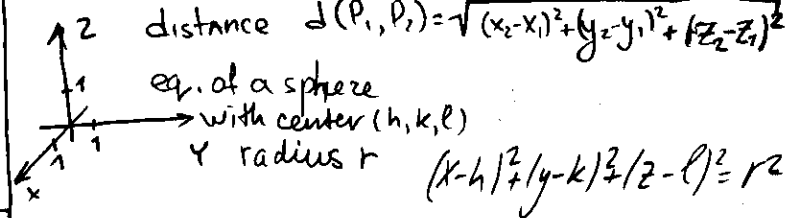 z distance d(P₁,P₂)=√(x₂-x₁)²+(y₂-y₁)²+(z₂-z₁)²
1 eq. of a sphere
with center (h,k,l)
1 1 Y radius r
x (x-h)²+(y-k)²+(z-l)²=r²